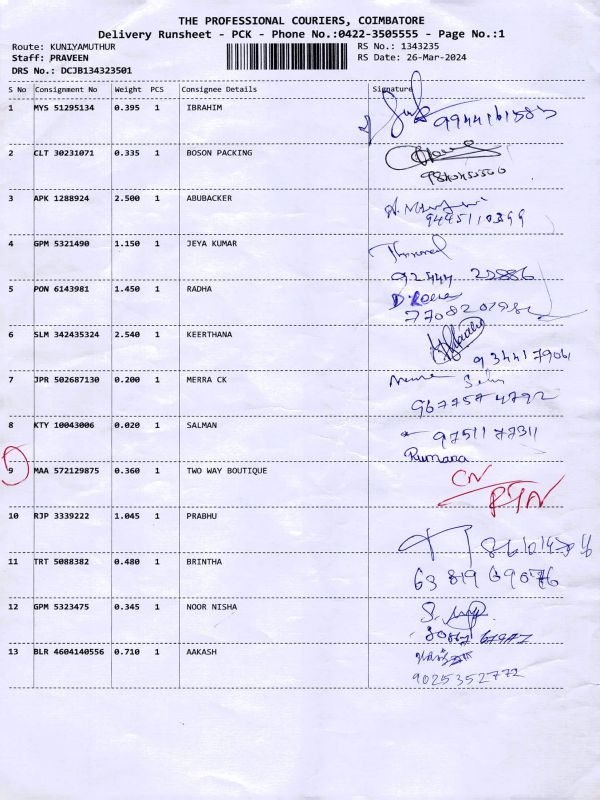 THE PROFESSIONAL COURIERS, COIMBATORE
Delivery Runsheet - PCK - Phone No.:0422-3505555 - Page No.:1
Route: KUNIYAMUTHUR RS No.: 1343235
Staff: PRAVEEN RS Date: 26-Mar-2024
DRS No.: DCJB134323501
S No Consignment No Weight PCS Consignee Details Signature
1 MYS 51295134 0.395 1 IBRAHIM
2 CLT 30231071 0.335 1 BOSON PACKING
3 APK 1288924 2.500 1 ABUBACKER
4 GPM 5321490 1.150 1 JEYA KUMAR
5 PON 6143981 1.450 1 RADHA
6 SLM 342435324 2.540 1 KEERTHANA
7 JPR 502687130 0.200 1 MERRA CK
9677574792
8 KTY 10043006 0.020 1 SALMAN
Rumana
9 MAA 572129875 0.360 1 TWO WAY BOUTIQUE CN
RTN
10 RJP 3339222 1.045 1 PRABHU
11 TRT 5088382 0.480 1 BRINTHA
12 GPM 5323475 0.345 1 NOOR NISHA
13 BLR 4604140556 0.710 1 AAKASH
9025352772